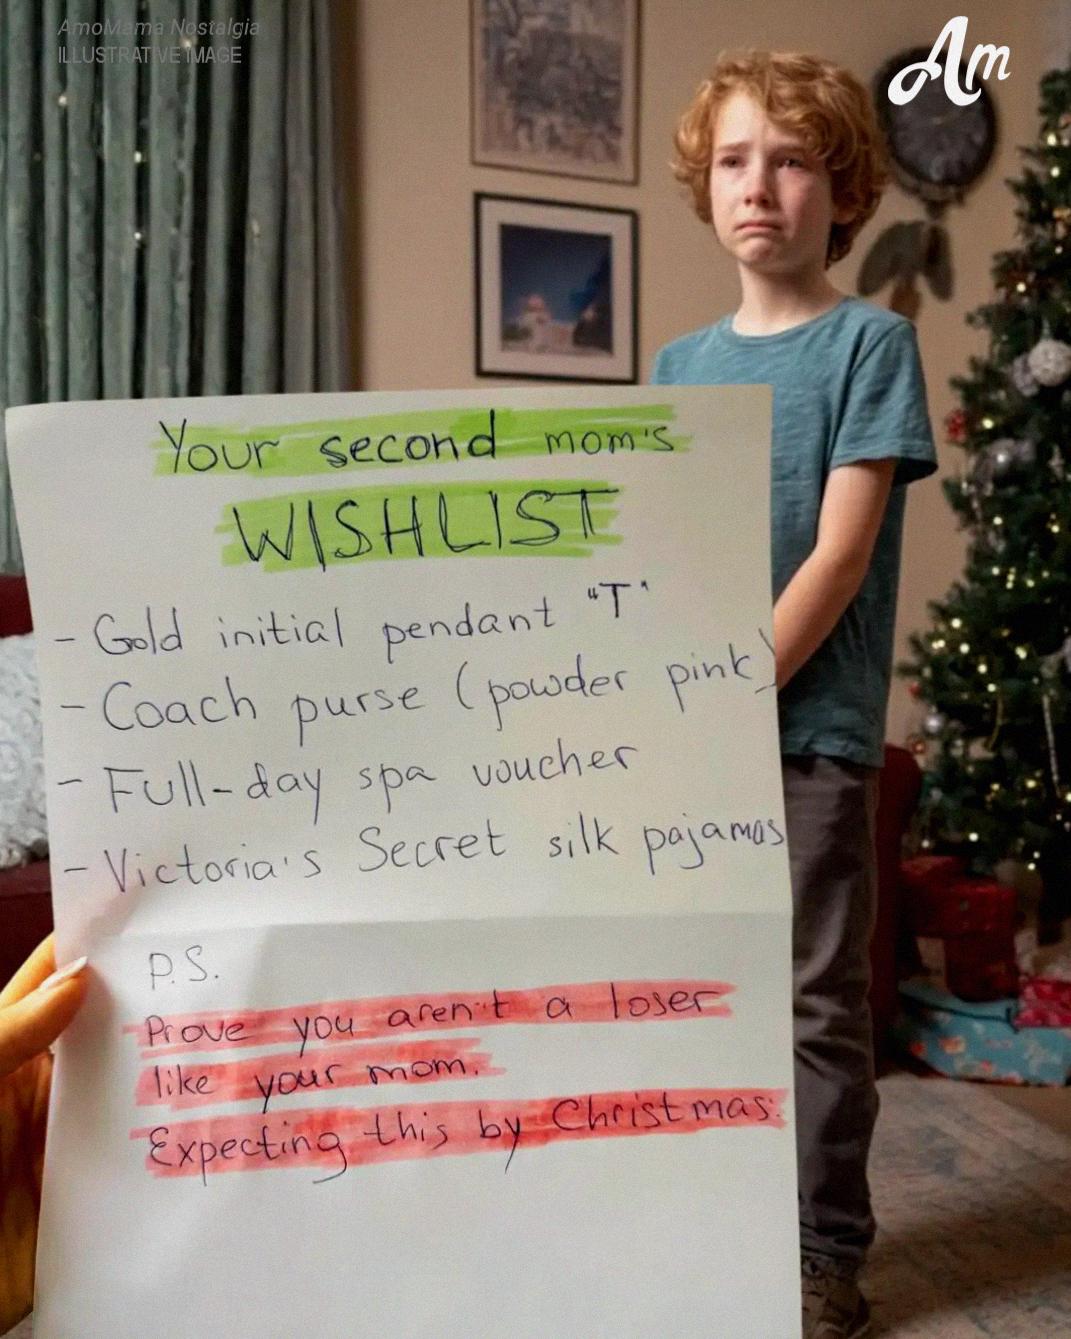 AmoMama Nostalgia
ILLUSTRATIVE IMAGE
Am
Your second mom's
WISHLIST
- Gold initial pendant "T"
- Coach purse (powder pink)
- Full-day spa voucher
- Victoria's Secret silk pajamas
P.S.
Prove you aren't a loser
like your mom.
Expecting this by Christmas.